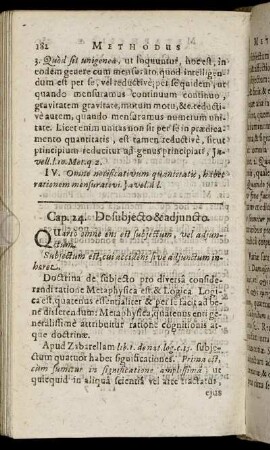 182 METHODUS
3. Quòd sit unigenea, ut loquuntur, hoc est, in
eodem genere cum mensurato, quod intelligen-
dum est per se, vel reductive; per se quidem, ut
quando mensuramus continuum continuo,
gravitatem gravitate, motum motu, &c. reducti-
ve autem, quando mensuramus numerum uni-
tate. Licet enim unitas non sit per se in prædica-
mento quantitatis, est tamen reductive, sicut
principium reducitur ad genus principiati, Ja-
vell. l. 10. Met. q. 2.
IV. Omne notificativum quantitatis, habet
rationem mensurativi. Javel. d l.
Cap. 24. De subjecto & adjuncto.
QUarto omne ens est subjectum, vel adjun-
ctum.
Subjectum est, cui accidens sive adjunctum in-
hæret.
Doctrina de subjecto pro diversa conside-
randi ratione Metaphysica est & Logica. Logi-
ca est, quatenus essentialiter & per se facit ad be-
ne disserendum: Metaphysica, quatenus enti ge-
neralissime attribuitur ratione cognitionis at-
que doctrinæ.
Apud Zabarellam lib. 1. de nat. log. c. 15. subje-
ctum quatuor habet significationes. Prima est,
cum sumitur in significatione amplissimâ, ut
quicquid in aliquâ scientiâ vel arte tractatur,
ejus